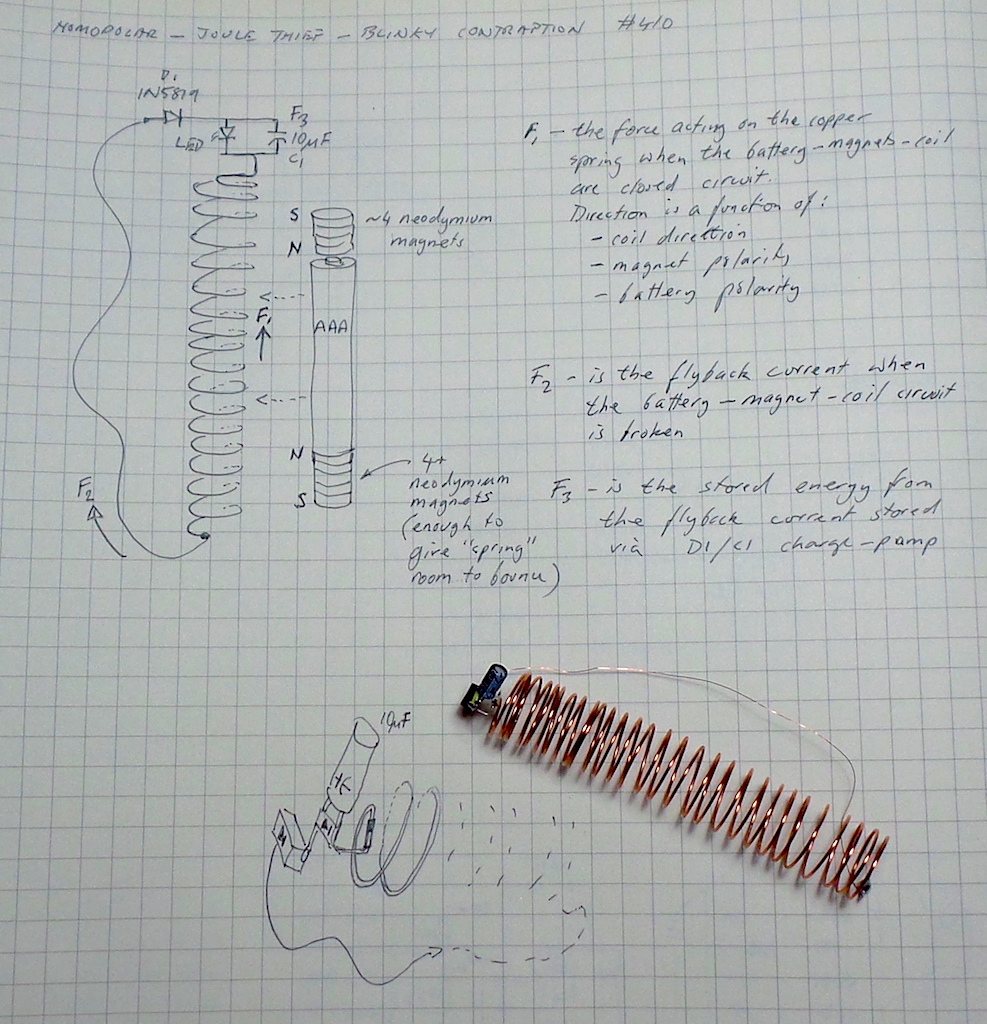 HOMOPOLAR - JOULE THIEF - BLINKY CONTRAPTION #410
D1
1N5819
LED
F3
10µF
C1
S
N
~4 neodymium
magnets
AAA
F1
N
S
4+
neodymium
magnets
(enough to
give "spring"
room to bounce)
F2
F1 - the force acting on the copper
spring when the battery-magnets-coil
are closed circuit.
Direction is a function of:
- coil direction
- magnet polarity
- battery polarity
F2 - is the flyback current when
the battery-magnet-coil circuit
is broken
F3 - is the stored energy from
the flyback current stored
via D1/C1 charge-pump
10µF